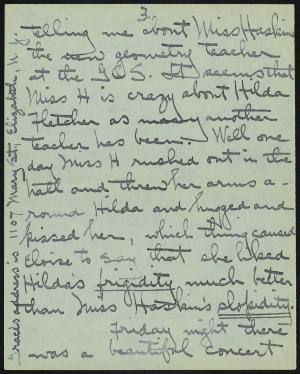 3.
telling me about Miss Haskins
the new geometry teacher
at the G.C.S. It seems that
Miss H is crazy about Hilda
Fletcher as many another
teacher has been. Well one
day Miss H rushed out in the
hall and threw her arms a-
round Hilda and hugged and
kissed her, which thing caused
Eloise to say that she liked
Hilda's frigidity much better
than Miss Haskin's
Friday night there
was a beautiful concert
Grace's address is 1107 Mary St., Elizabeth, N. J.